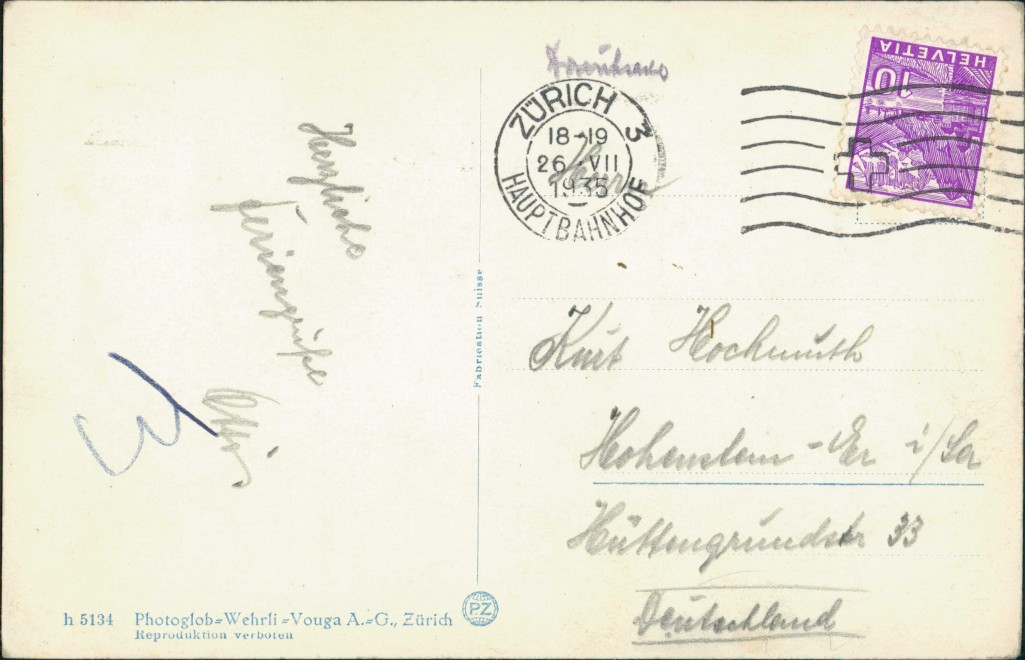 Herzliche
Feriengrüße
h 5134 Photoglob=Wehrli=Vouga A.=G., Zürich
Reproduktion verboten
PZ
Fabrication Suisse
ZÜRICH 3
18-19
26 VII
1935
HAUPTBAHNHOF
HELVETIA
10
Kurt Hochmuth
Hohenstein-Er i/Sa
Hüttengrundstr 33
Deutschland